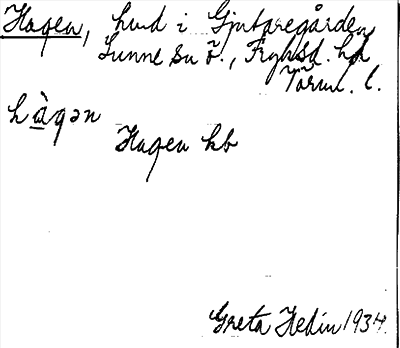 Hagen, hmd i Gjutaregården
Sunne sn ö., Fryksd. hd
Värml. l.
hàgən
Hagen kb
Greta Hedin 1934.